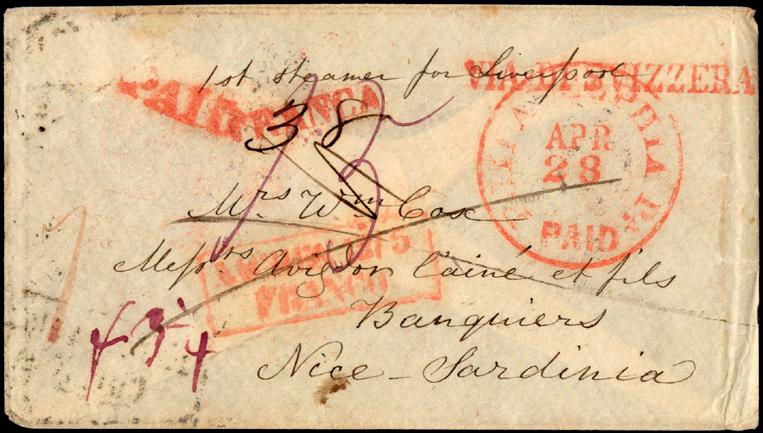 1st steamer for Liverpool
PAID
FRANCA
VIA DI SVIZZERA
38
PHILADELPHIA Pa.
APR
28
PAID
Mrs Wm Cox
Messrs Avigdor l'ainé et fils
FRANCO
Banquiers
Nice - Sardinia